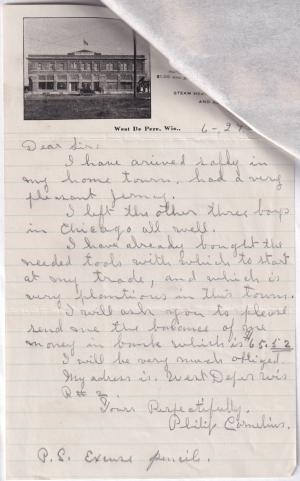 STEAM HEA
AND
West De Pere, Wis.,
6-29
Dear Sir:
I have arived safly in
my home town, had a very
plesant Jerney.
I left the other three boys
in Chicago all well.
I have already bought the
needed tools with which to start
at my trade, and which is
very plentious in this town.
I will ask you to please
send me the balance of my
money in bank which is $65.52
I will be very much obliged.
My adress is. West Depere Wis
R# 2.
Yours Respectifully.
Philip Cornelius.
P.S. Excuse pencil.